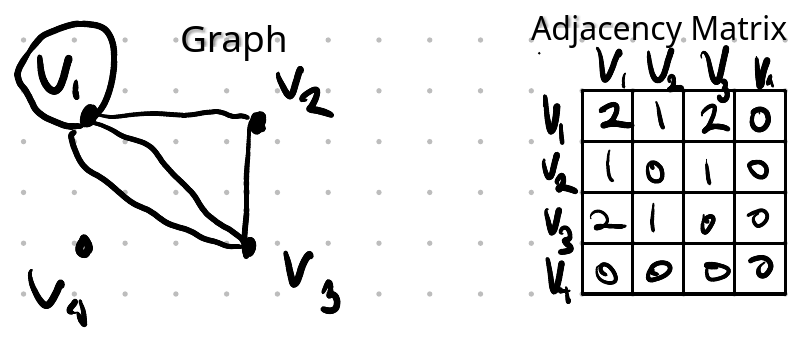 Graph
V1
V2
V3
V4
Adjacency Matrix
V1 V2 V3 V4
V1 2 1 2 0
V2 1 0 1 0
V3 2 1 0 0
V4 0 0 0 0